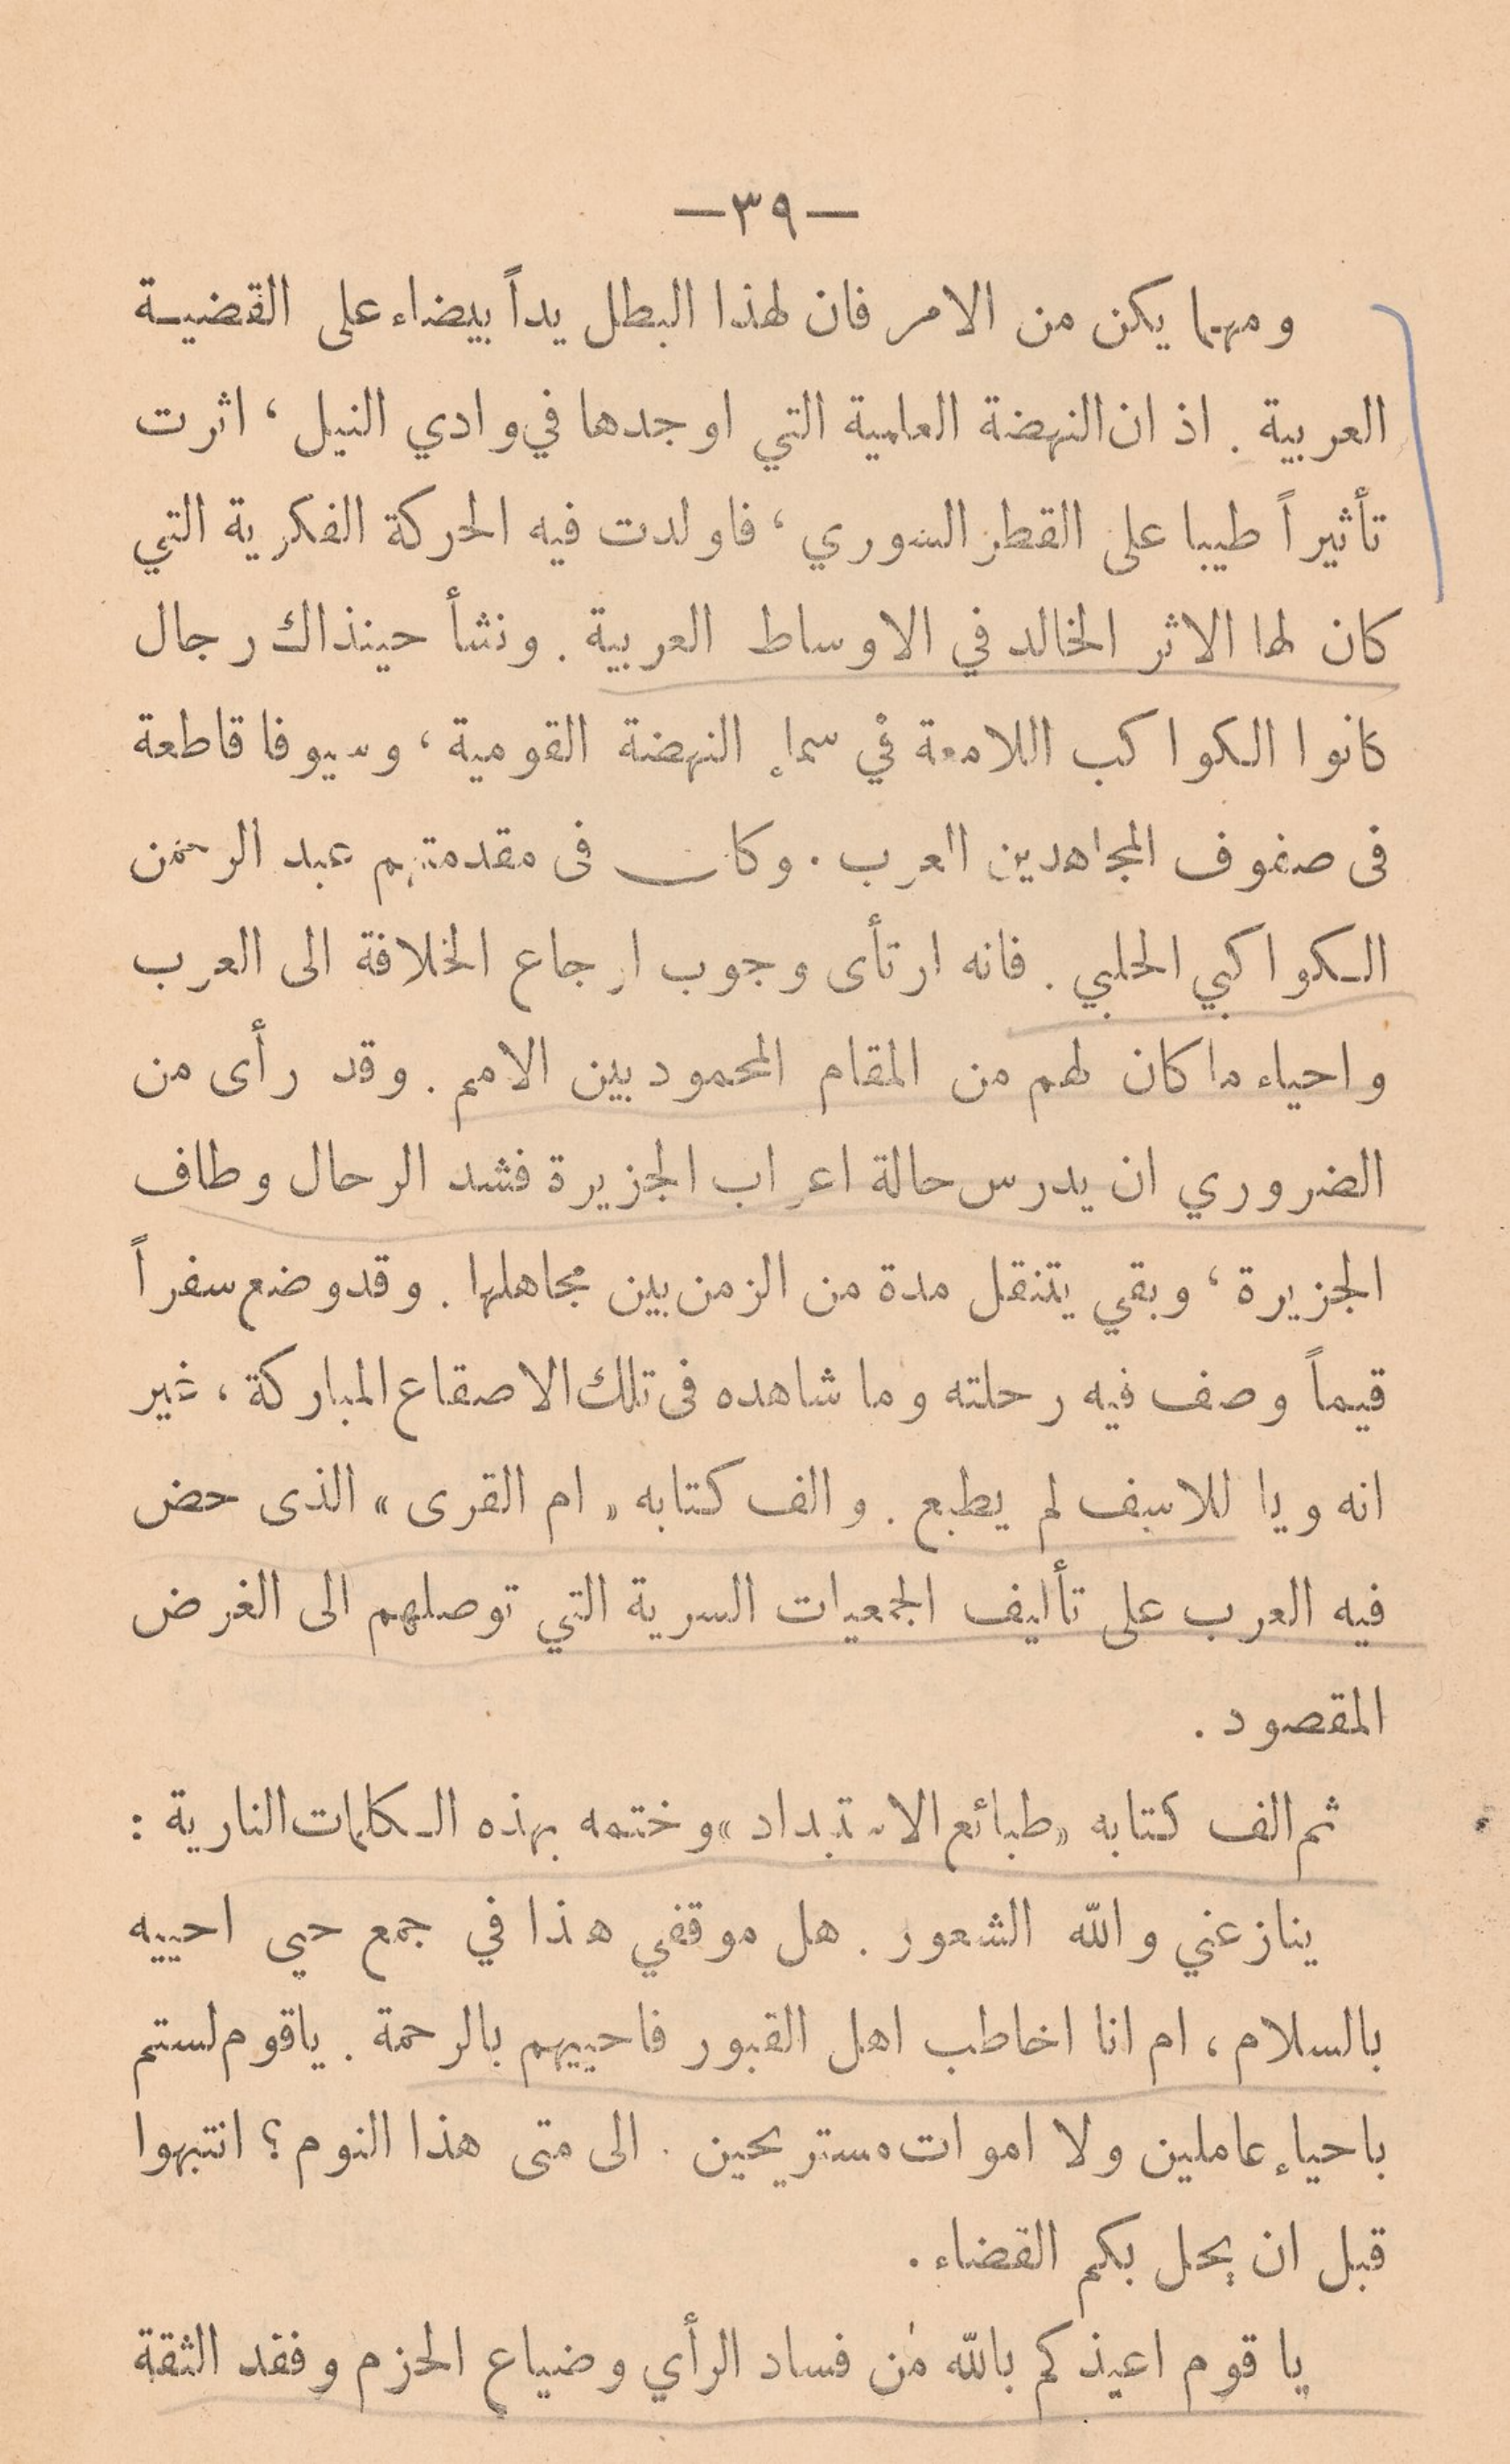 —٣٩—
ومهما يكن من الامر فان لهذا البطل يداً بيضاء على القضيـة
العربية . اذ ان النهضة العلمية التي اوجدها في وادي النيل ، اثرت
تأثيراً طيبا على القطر السوري ، فاولدت فيه الحركة الفكرية التي
كان لها الاثر الخالد في الاوساط العربية . ونشأ حينذاك رجال
كانوا الكواكب اللامعة في سماءِ النهضة القومية ، وسيوفا قاطعة
فى صفوف المجاهدين العرب . وكان فى مقدمتهم عبد الرحمن
الـكواكبي الحلبي . فانه ارتأى وجوب ارجاع الخلافة الى العرب
واحياء ما كان لهم من المقام المحمود بين الامم . وقد رأى من
الضروري ان يدرس حالة اعراب الجزيرة فشد الرحال وطاف
الجزيرة ، وبقي يتنقل مدة من الزمن بين مجاهلها . وقد وضع سفراً
قيماً وصف فيه رحلته وما شاهده فى تلك الاصقاع المباركة ، غير
انه ويا للاسف لم يطبع . والف كتابه « ام القرى » الذى حض
فيه العرب على تأليف الجمعيات السرية التي توصلهم الى الغرض
المقصود .
ثم الف كتابه « طبائع الاستبداد » وختمه بهذه الـكلمات النارية :
ينازعني والله الشعور . هل موقفي هذا في جمع حي احييه
بالسلام ، ام انا اخاطب اهل القبور فاحييهم بالرحمة . ياقوم لستم
باحياءِ عاملين ولا اموات مستريحين . الى متى هذا النوم ؟ انتبهوا
قبل ان يحل بكم القضاء .
يا قوم اعيذكم بالله من فساد الرأي وضياع الحزم وفقد الثقة